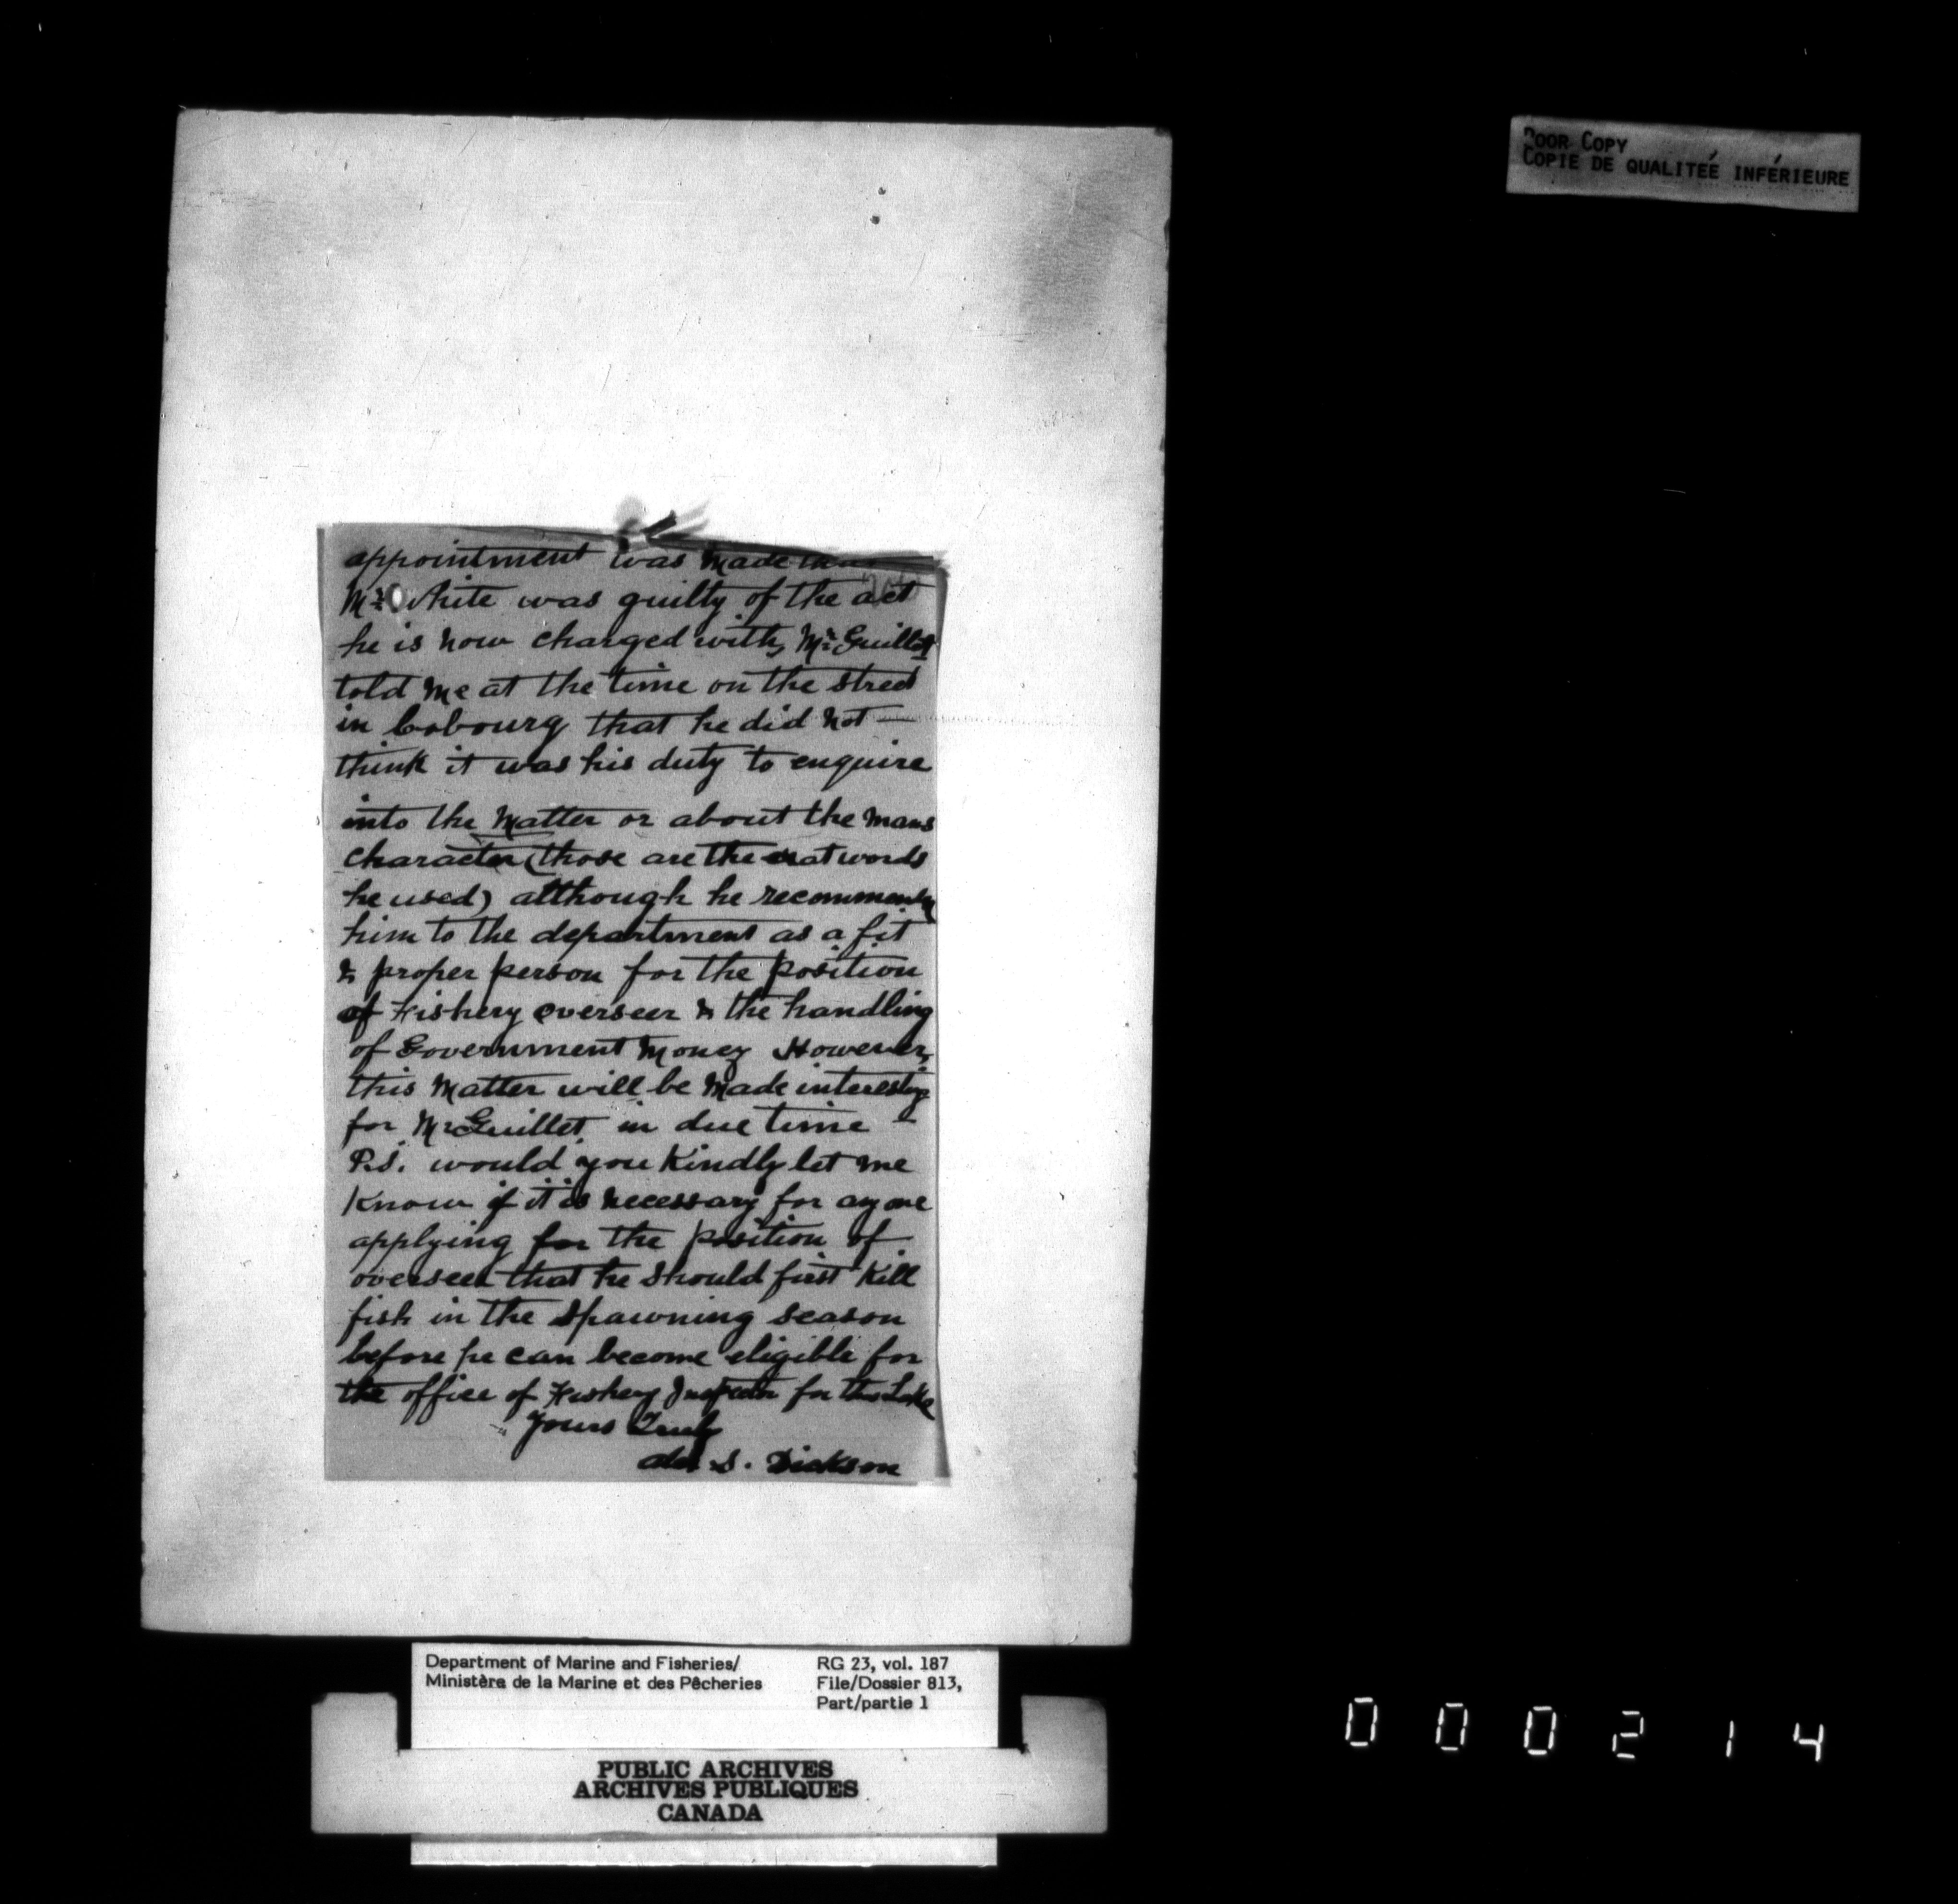 POOR COPY
COPIE DE QUALITEÉ INFÉRIEURE
appointment was made that
Mr White was guilty of the act
he is now charged with, Mr Guillet
told me at the time on the street
in Cobourg that he did not —
think it was his duty to enquire
into the matter or about the mans
character (those are the exat words
he used) although he recommends
him to the department as a fit
& proper person for the position
of Fishery overseer & the handling
of Government money However,
this matter will be made interesting
for Mr Guillet in due time
P.S. would you Kindly let me
Know if it is necessary for any one
applying for the position of
overseer that he should first Kill
fish in the spawning season
before he can become eligible for
the office of Fishery Inspector for this Lake
Yours Truly
S. Dickson
Department of Marine and Fisheries/
Ministère de la Marine et des Pêcheries
RG 23, vol. 187
File/Dossier 813,
Part/partie 1
PUBLIC ARCHIVES
ARCHIVES PUBLIQUES
CANADA
000214